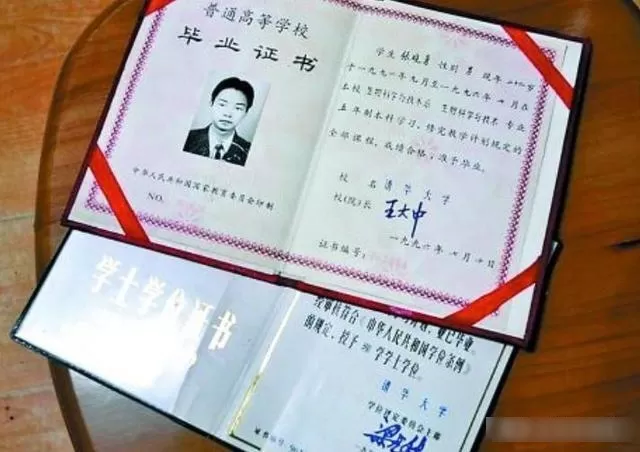 普通高等学校
毕业证书
中华人民共和国国家教育委员会印制
NO.
学生 张晓勇 性别 男 现年 岁
于一九九一年九月至一九九六年七月在
本校 生物科学与技术系 生物科学与技术 专业
五年制本科学习，修完教学计划规定的
全部课程，成绩合格，准予毕业。
校 名 清华大学
校(院)长 王大中
证书编号：
一九九六年七月 日
学士学位证书
经审核符合《中华人民共和国学位条例》
的规定，授予 学学士学位。
清华大学
学位评定委员会主席
证书编号